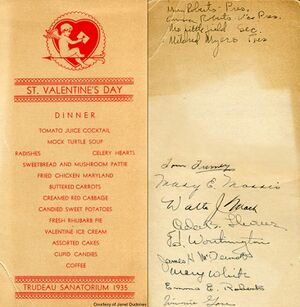 ST. VALENTINE'S DAY
DINNER
TOMATO JUICE COCKTAIL
MOCK TURTLE SOUP
RADISHES CELERY HEARTS
SWEETBREAD AND MUSHROOM PATTIE
FRIED CHICKEN MARYLAND
BUTTERED CARROTS
CREAMED RED CABBAGE
CANDIED SWEET POTATOES
FRESH RHUBARB PIE
VALENTINE ICE CREAM
ASSORTED CAKES
CUPID CANDIES
COFFEE
TRUDEAU SANATORIUM 1935
Courtesy of Janet Dudones
Roberts - Pres.
Roberts Vice Pres
Littlefield Sec.
Mildred Myers Tres
Tom
Mary E. Massie
Walter J. Mack
Ed. Worthington
James H. McDermott
Mary White
Emma E. Roberts